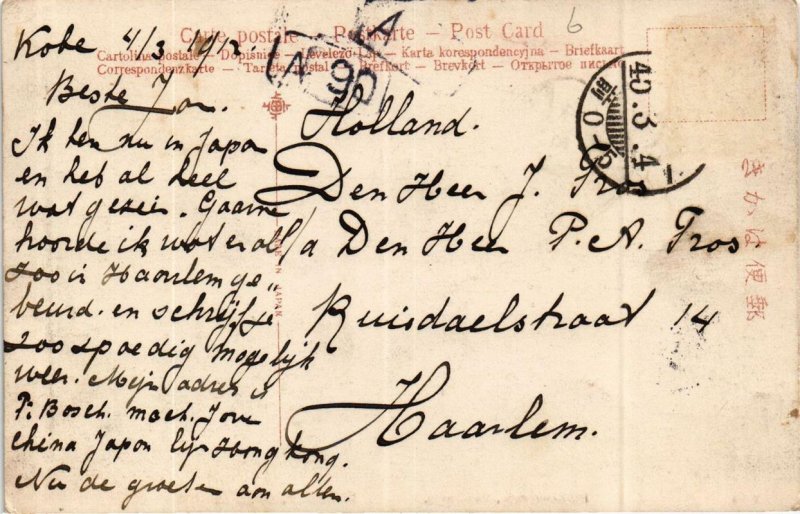 Carte postale — Postkarte — Post Card
Cartolina postale — Dopisnice — Levelező-Lap — Karta korespondencyjna — Briefkaart
Correspondenzkarte — Tarjeta postal — Brefkort — Brevkort — Открытое письмо
6
Kobe 4/3 1912.
Beste Jon.
Ik ben nu in Japan
en heb al heel
wat gezien. Gaarne
hoorde ik wat er al
zoo in Haarlem ge„
beurd. en schrijf je
zoo spoedig mogelijk
weer. Mijn adres is
P. Bosch. mach. Java
China Japan lijn Hongkong.
Nu de groeten aan allen.
Holland.
Den Heer J. Tros
p/a Den Heer P. A. Tros
Ruisdaelstraat 14
Haarlem.
40.3.4
きかは便郵
JAPAN